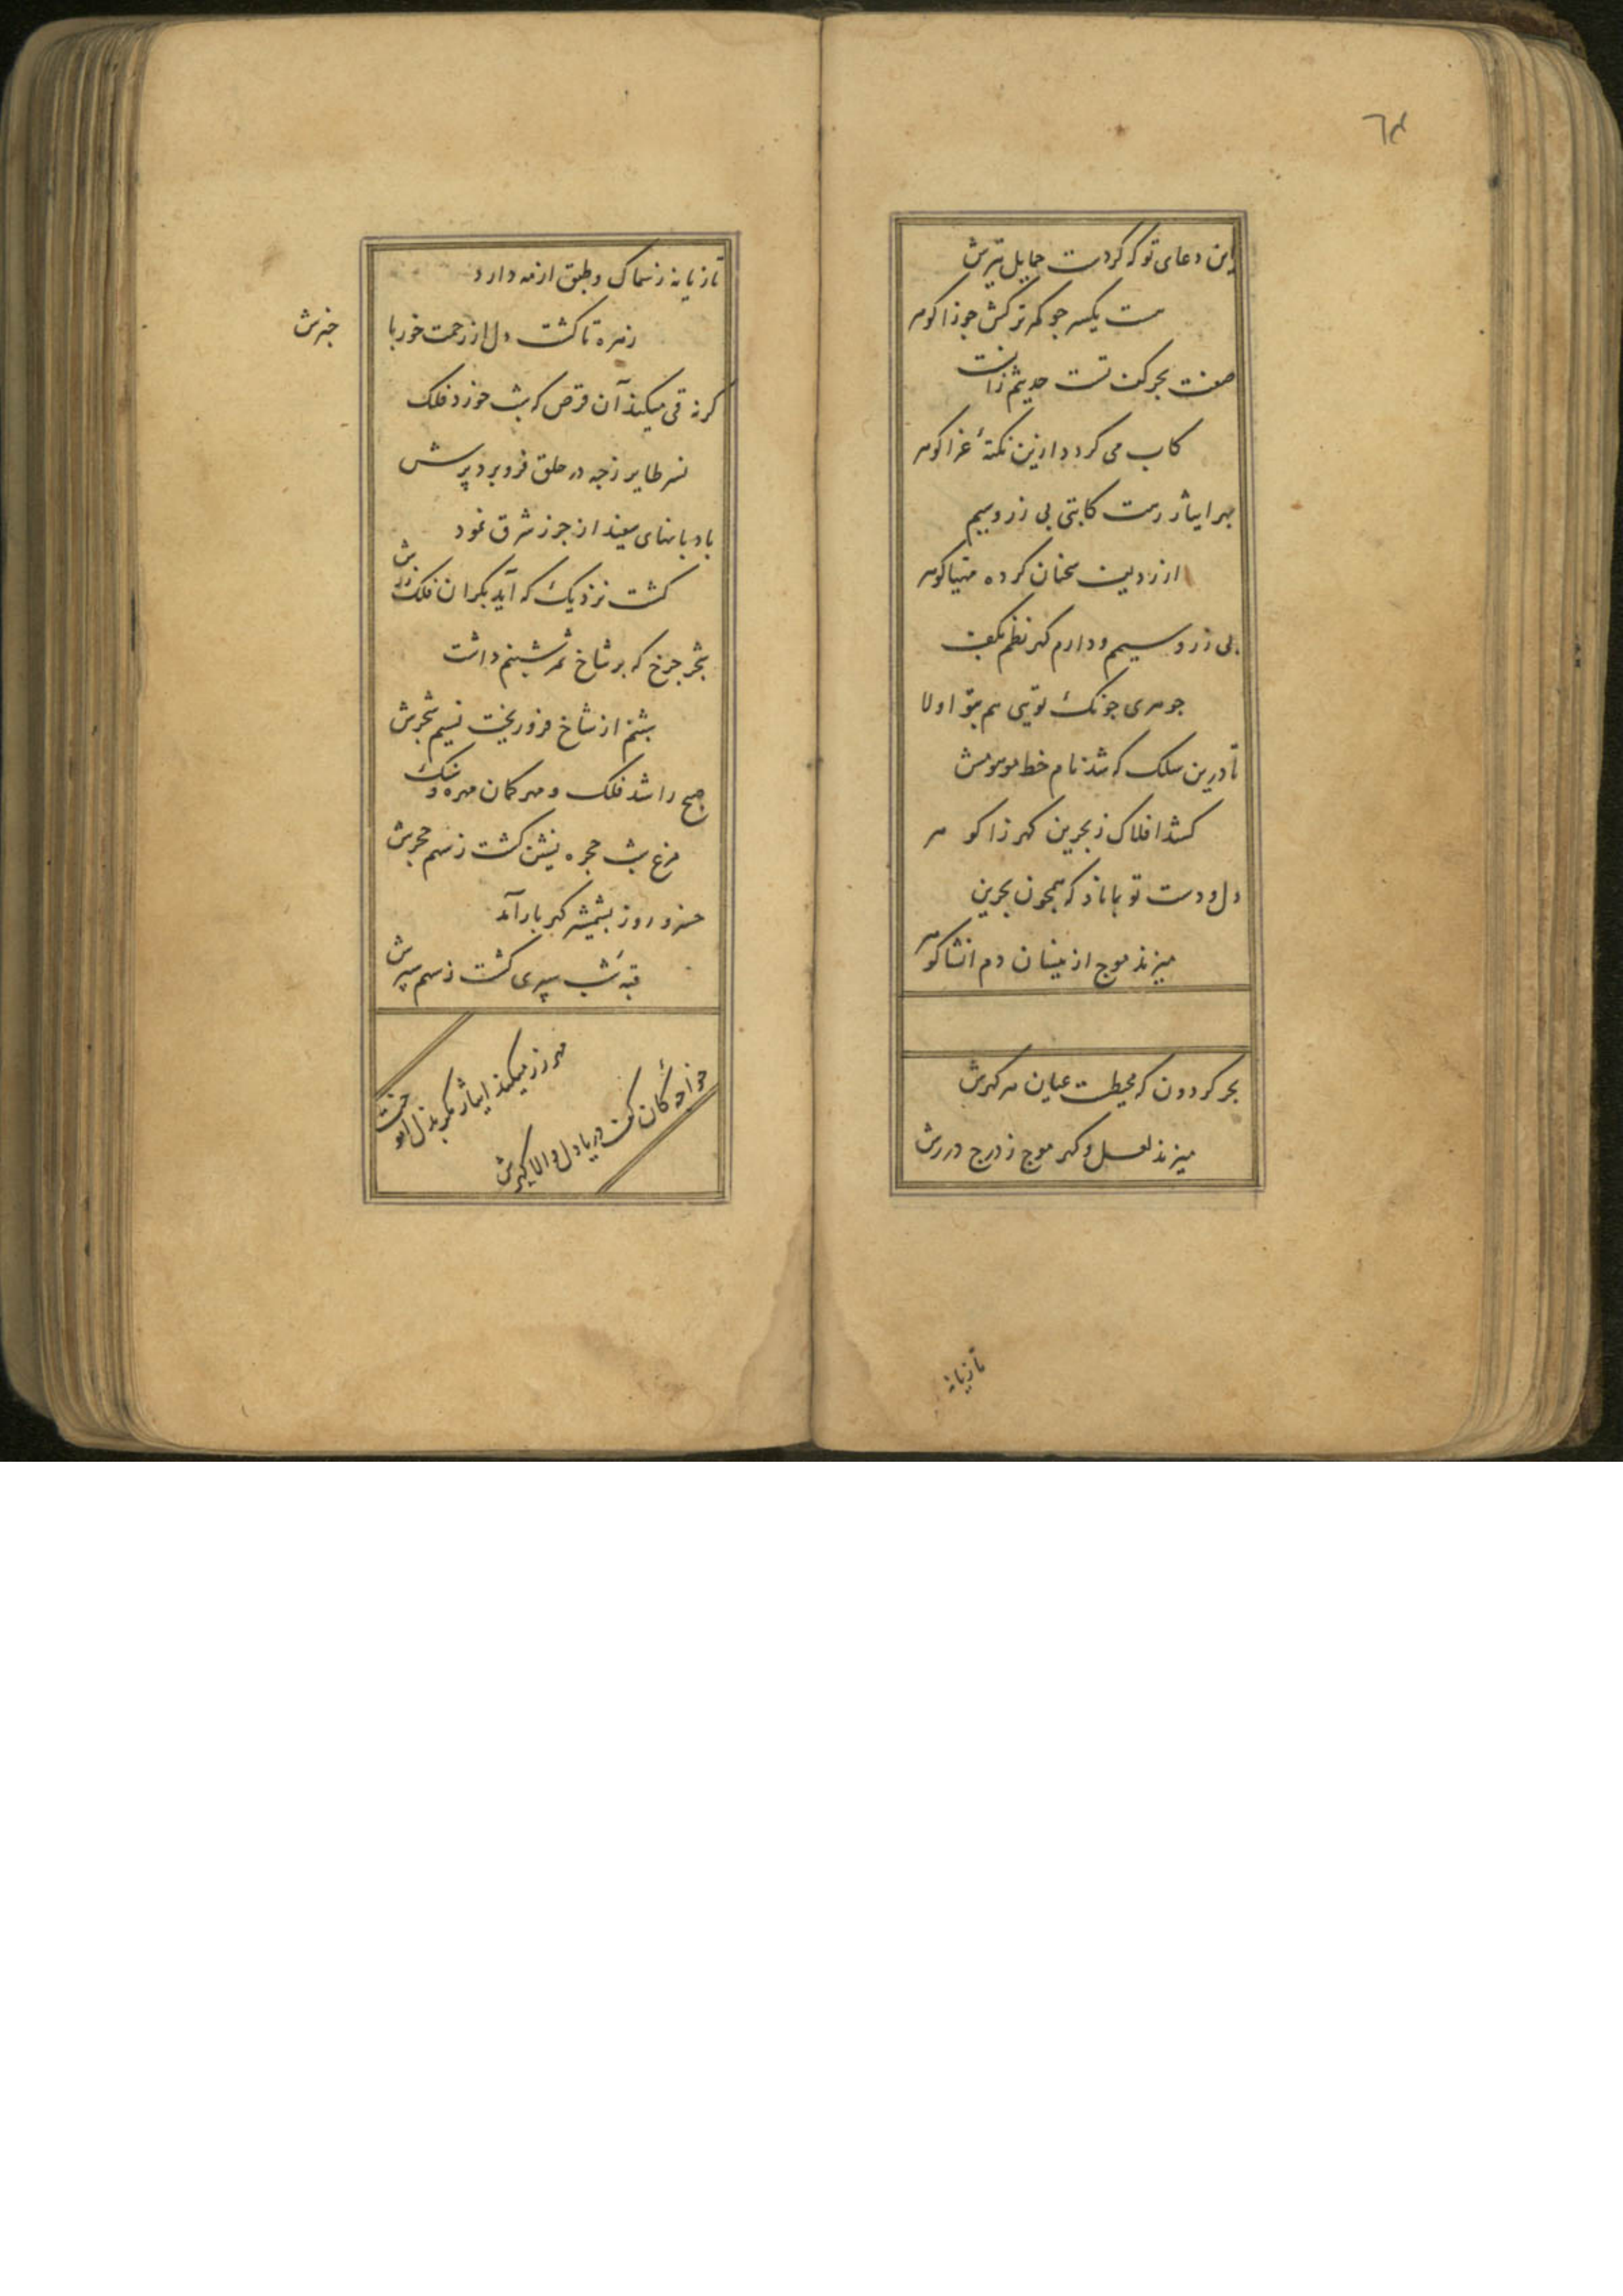 این دعای تو که کردست حمایل تیرش
ست یکسر جو کمر ترکش جوزا کوهر
صفت بحر کف تست حدیثم زانست
کاب می کردد ازین نکتهٔ غرا کوهر
بهر ایثار رهت کاتبی بی زر و سیم
از ردیف سخنان کرده مهیا کوهر
بی زر و سیم و دارم کهر نظم بکف
جوهری جونک تویی هم بتو اولا
تا درین سلک که شد نام خط موهومش
کشد افلاک ز بحرین کهرزا کوهر
دل و دست تو بماناد که همجون بحرین
میزند موج از ینسان دم انشا کوهر
بحر کردون که محیطست عیان هر کهرش
میزند لعل و کهر موج ز درج دررش
تازیانه
تازیانه ز سماک و طبق از مه دارد
زهره تا کشت دل از زحمت خور با خبرش
کرنه قی میکند آن قرص که شب خورد فلک
نسر طایر زجه در حلق فرو برد پرش
بادبانهای سفید از جزر شرق نمود
کشت نزدیک که آید بکران فلک
شجر جرخ که بر شاخ ثمر شبنم داشت
شبنم از شاخ فرو ریخت نسیم شجرش
صبح را شد فلک و مهر کمان مهره و شک
مرغ شب حجره نشین کشت ز سهم حجرش
خسرو روز بشمشیر کهربار آمد
قبهٔ شب سپری کشت ز سهم سپرش
مهر زر میکند ایثار مکر بذل آموخت
خواجهٔ کان کف دریا دل والا کهرش